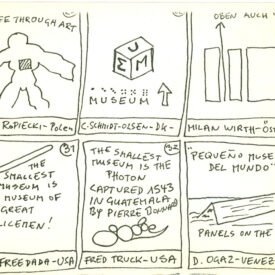 EE THROUGH ART
ROPIECKI-POLEN
UEM
MUSEUM
C. SCHMIDT-OLSEN-DK-
OBEN AUCH
MILAN WIRTH-ÖS
31
THE
SMALLEST
MUSEUM IS
MUSEUM OF
GREAT
LICEMEN!
FREEDADA-USA
32
THE SMALLEST
MUSEUM IS THE
PHOTON
CAPTURED 1543
IN GUATEMALA
BY PIERRE
FRED TRUCK-USA
"PEQUEÑO MUSE
DEL MUNDO"
PANELS ON THE
D. OGAZ-VENEZ